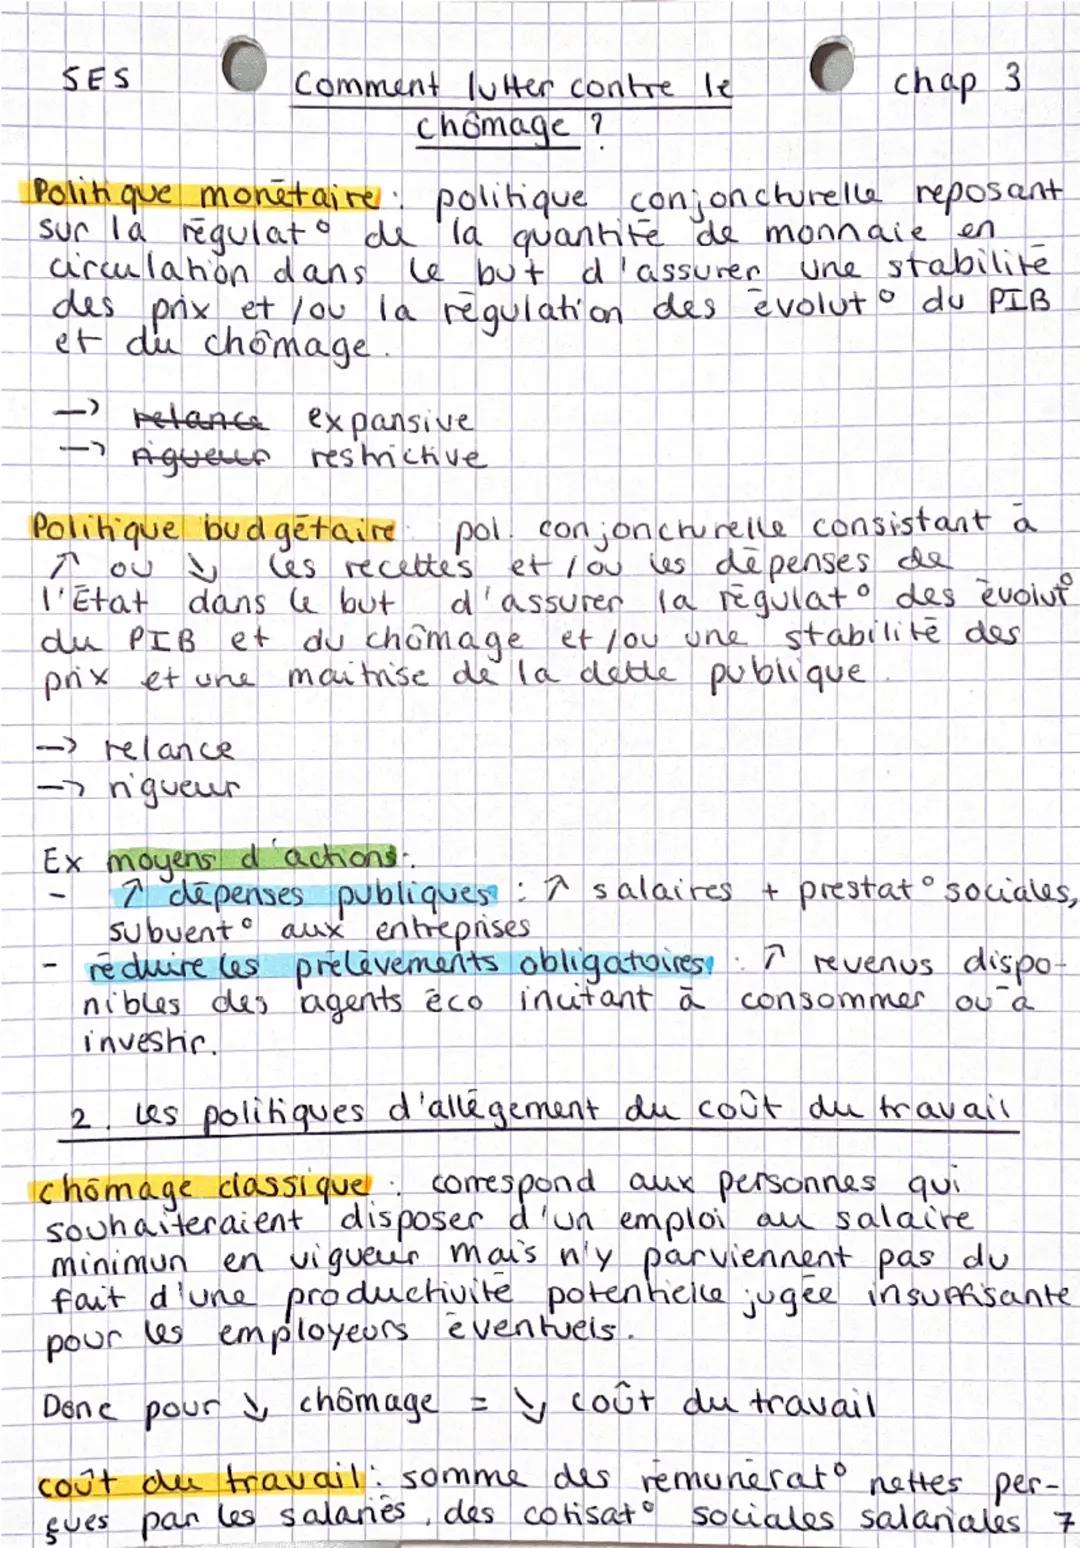 SES
Comment lutter contre le
chômage ?
chap 3
Politique monétaire : politique conjoncturelle reposant
sur la régulat° de la quantité de monnaie en
circulation dans le but d'assurer une stabilité
des prix et/ou la régulation des évolut° du PIB
et du chômage.
-> relance expansive
-> rigueur restrictive
Politique budgétaire : pol. conjoncturelle consistant à
↗ ou ↘ les recettes et/ou les dépenses de
l'État dans le but d'assurer la régulat° des évolut°
du PIB et du chômage et/ou une stabilité des
prix et une maitrise de la dette publique.
-> relance
-> rigueur
Ex moyens d'actions :
- ↗ dépenses publiques : ↗ salaires + prestat° sociales,
subvent° aux entreprises
- réduire les prélèvements obligatoires : ↗ revenus dispo-
nibles des agents éco incitant à consommer ou à
investir.
2. Les politiques d'allégement du coût du travail
chômage classique : correspond aux personnes qui
souhaiteraient disposer d'un emploi au salaire
minimun en vigueur mais n'y parviennent pas du
fait d'une productivité potentielle jugée insuffisante
pour les employeurs éventuels.
Donc pour ↘ chômage = ↘ coût du travail
coût du travail : somme des rémunérat° nettes per-
çues par les salariés, des cotisat° sociales salariales 7